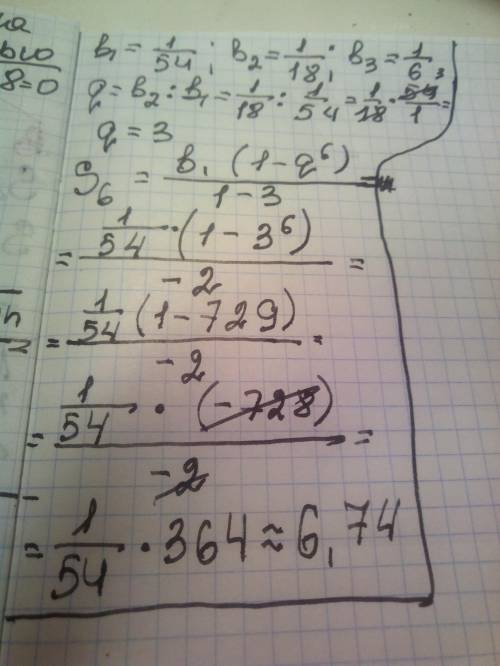 ма
ью
8=0
b₁ = 1/54 ; b₂ = 1/18 ; b₃ = 1/6 ,
q = b₂ : b₁ = 1/18 : 1/54 = 1/18 · 54/1 =
q = 3
S₆ = b₁ (1 - q⁶) / 1 - 3 =
= 1/54 · (1 - 3⁶) / -2 =
= 1/54 (1 - 729) / -2 =
= 1/54 · (-728) / -2 =
= 1/54 · 364 ≈ 6,74